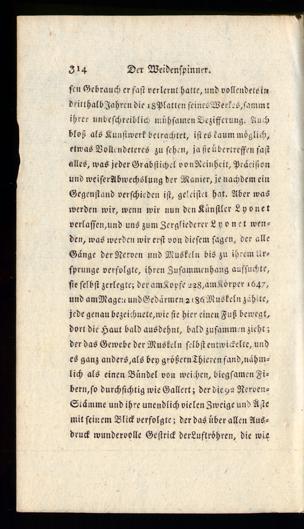 314 Der Weidenspinner.
sen Gebrauch er fast verlernt hatte, und vollendete in
dritthalb Jahren die 18 Platten seines Werkes, sammt
ihrer unbeschreiblich mühsamen Bezifferung. Auch
bloß als Kunstwerk betrachtet, ist es kaum möglich,
etwas Vollendeteres zu sehen, ja sie übertreffen fast
alles, was jeder Grabstichel von Reinheit, Präcision
und weiser Abwechslung der Manier, je nachdem ein
Gegenstand verschieden ist, geleistet hat. Aber was
werden wir, wenn wir nun den Künstler Lyonet
verlassen, und uns zum Zergliederer Lyonet wen-
den, was werden wir erst von diesem sagen, der alle
Gänge der Nerven und Muskeln bis zu ihrem Ur-
sprunge verfolgte, ihren Zusammenhang aufsuchte,
sie selbst zerlegte; der am Kopfe 228, am Körper 1647,
und am Magen und Gedärmen 2186 Muskeln zählte,
jede genau bezeichnete, wie sie hier einen Fuß bewegt,
dort die Haut bald ausdehnt, bald zusammen zieht;
der das Gewebe der Muskeln selbst entwickelte, und
es ganz anders, als bey größern Thieren fand, nähm-
lich als einen Bündel von weichen, biegsamen Fi-
bern, so durchsichtig wie Gallert; der die 92 Nerven-
Stämme und ihre unendlich vielen Zweige und Äste
mit seinem Blick verfolgte; der das über allen Aus-
druck wundervolle Gestrick der Luftröhren, die wie